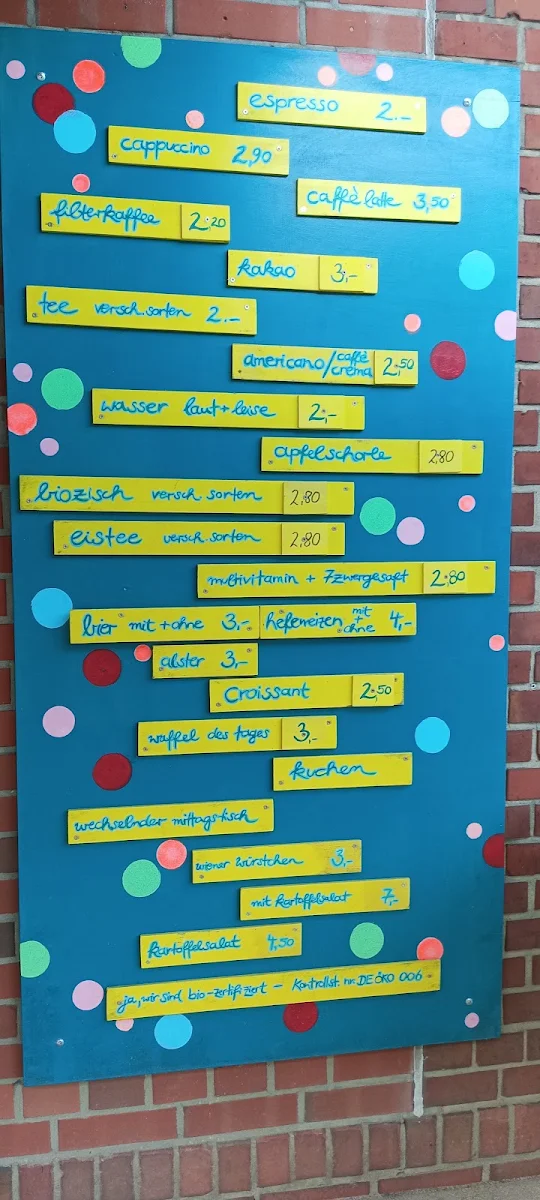 espresso 2.-
cappuccino 2,90
caffè latte 3,50
filterkaffee 2.20
kakao 3,-
tee versch. sorten 2.-
americano/caffè crema 2,50
wasser laut+leise 2,-
apfelschorle 2,80
biozisch versch. sorten 2,80
eistee versch. sorten 2,80
multivitamin + 7zwergesaft 2,80
bier mit+ohne 3,- hefeweizen mit + ohne 4,-
alster 3,-
Croissant 2,50
waffel des tages 3,-
kuchen
wechselnder mittagstisch
wiener würstchen 3,-
mit kartoffelsalat 7,-
kartoffelsalat 4,50
ja, wir sind bio-zertifiziert - Kontrollst. nr. DE ÖKO 006